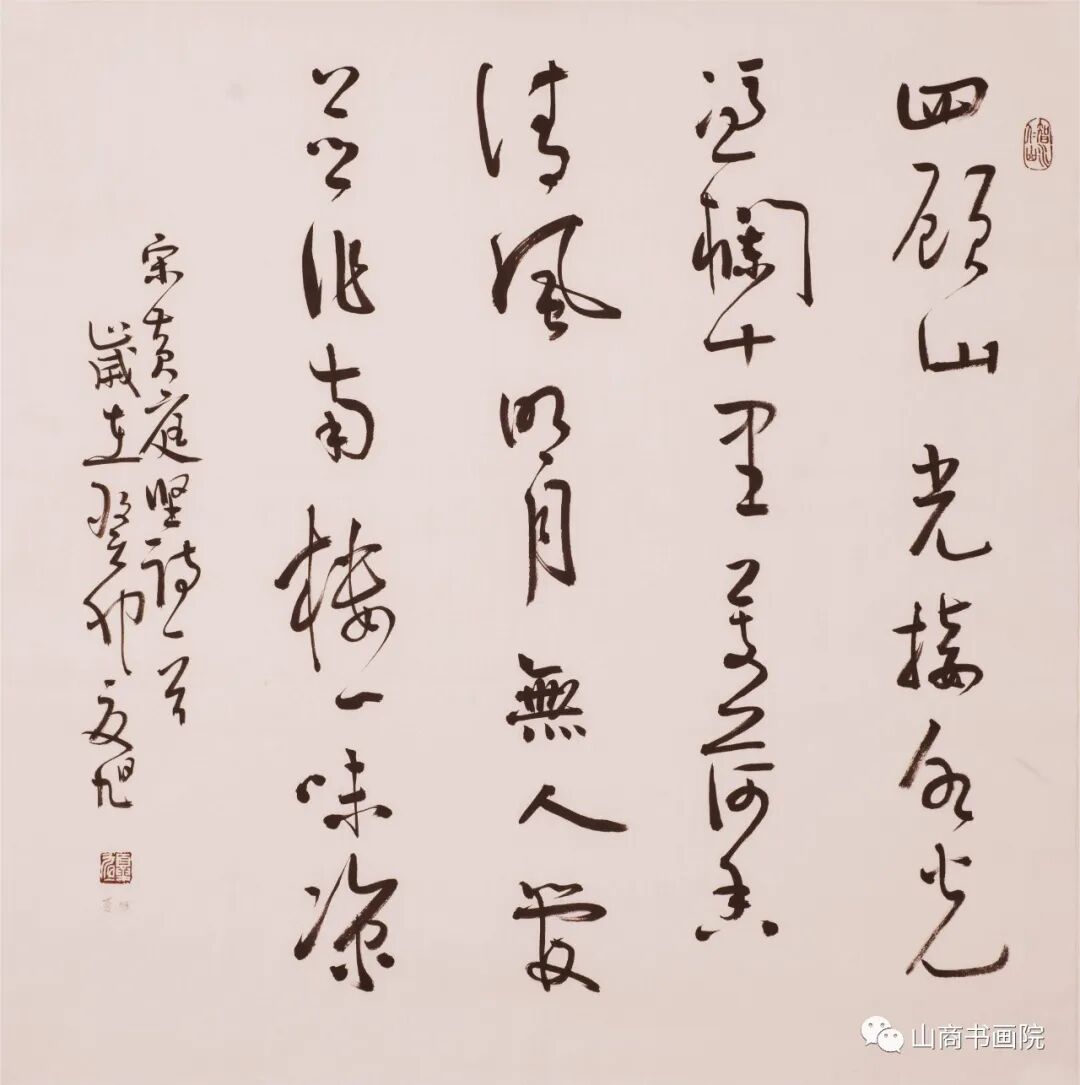 智水仁山
四顧山光接水光
憑欄十里芰荷香
清風明月無人管
並作南樓一味凉
宋黄庭坚诗一首
歲在癸卯夏旭
山商书画院